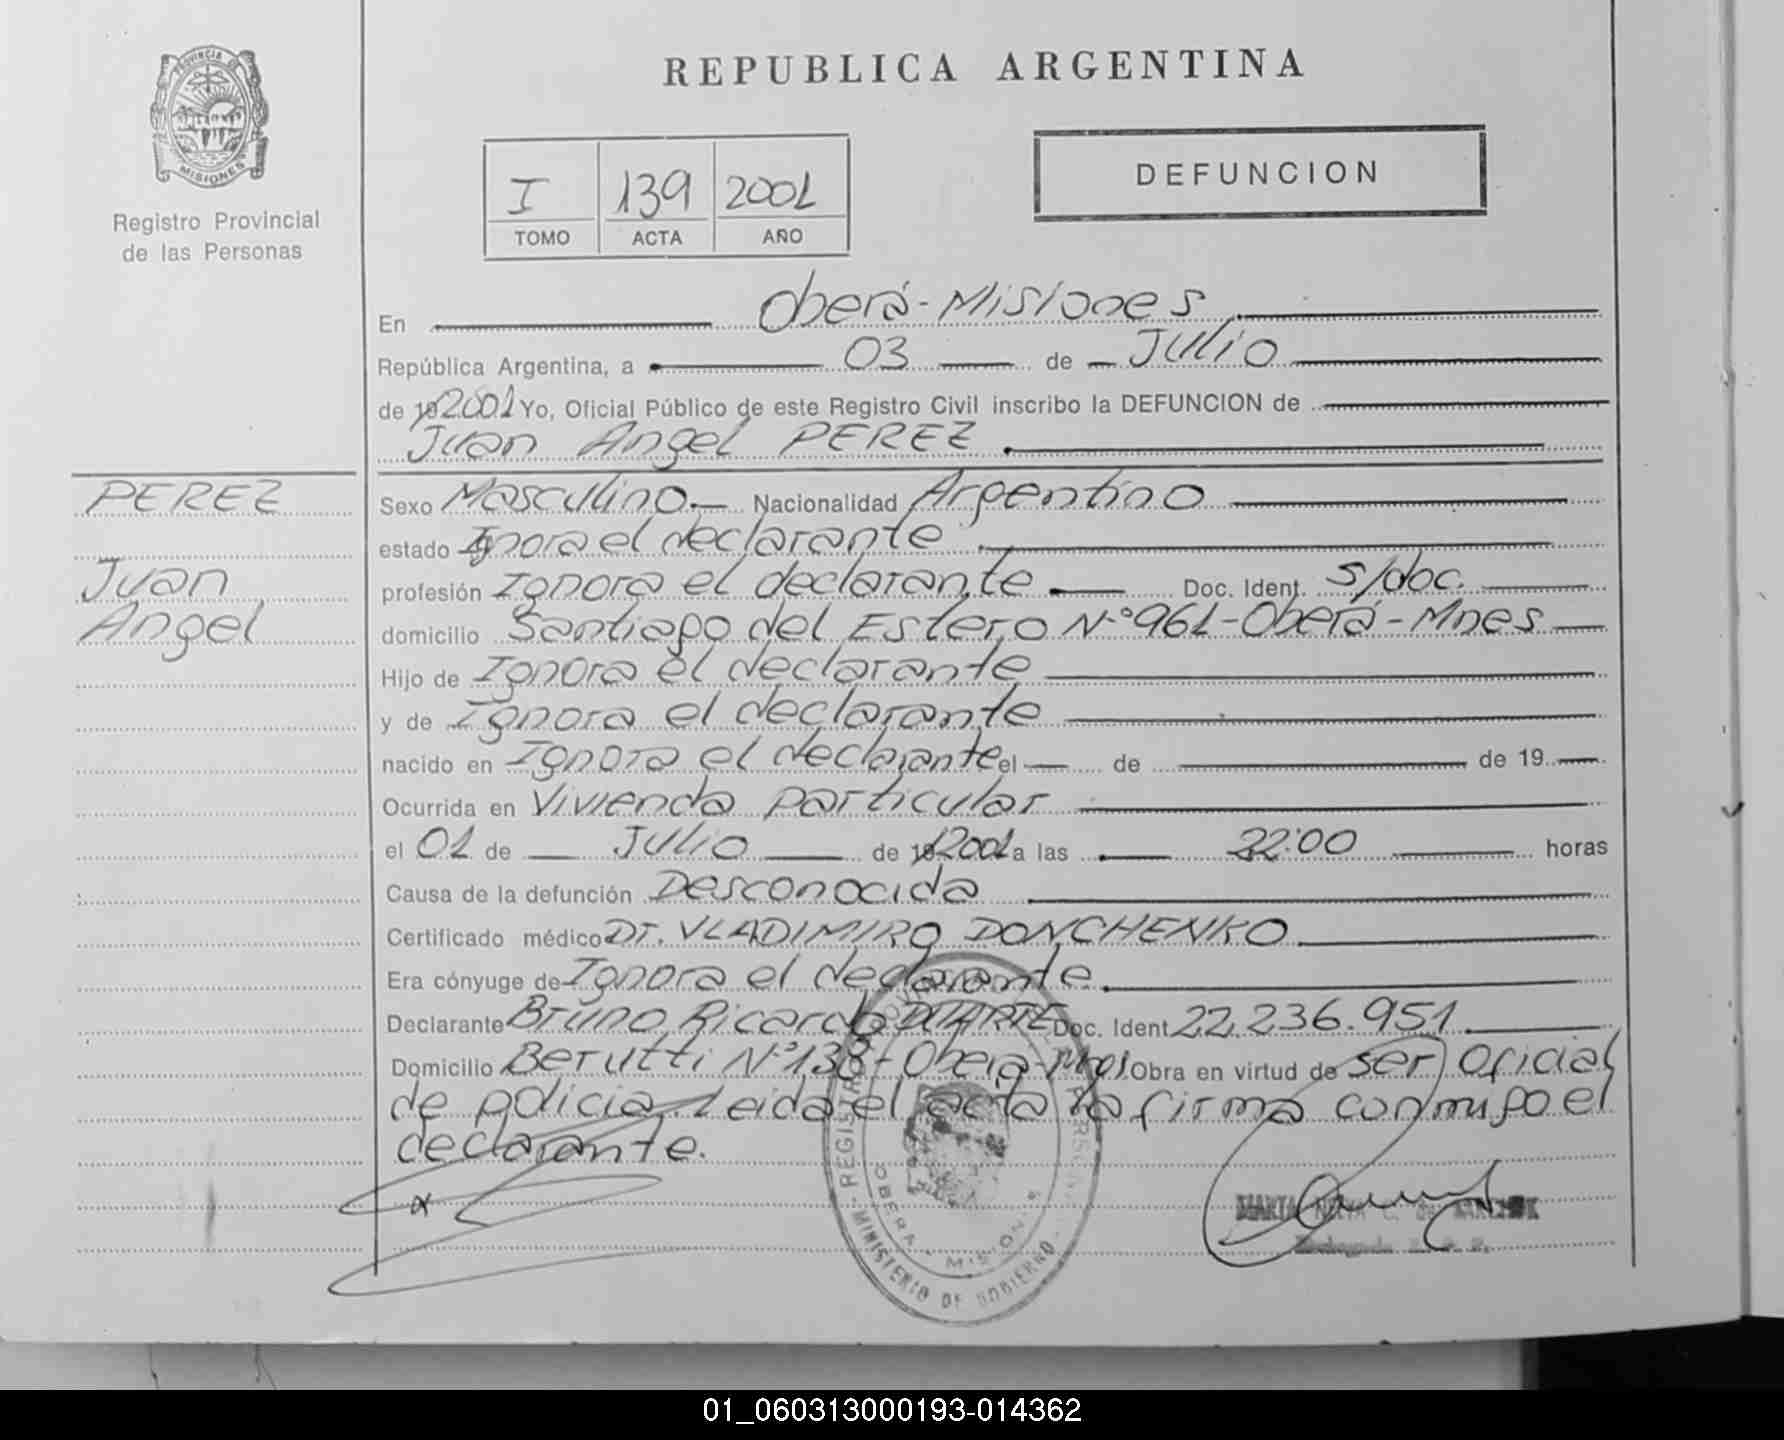 REPUBLICA ARGENTINA
PROVINCIA DE
MISIONES
Registro Provincial
de las Personas
I 139 2001
TOMO ACTA AÑO
DEFUNCION
En Oberá-Misiones
República Argentina, a 03 de Julio
de 192001 Yo, Oficial Público de este Registro Civil inscribo la DEFUNCION de
Juan Angel PEREZ
PEREZ
Juan
Angel
Sexo Masculino.- Nacionalidad Argentino
estado Ignora el declarante
profesión Ignora el declarante Doc. Ident. s/doc.
domicilio Santiago del Estero N°961-Oberá-Mnes
Hijo de Ignora el declarante
y de Ignora el declarante
nacido en Ignora el declarante el de de 19
Ocurrida en Vivienda particular
el 01 de Julio de 192001 a las 22:00 horas
Causa de la defunción Desconocida
Certificado médico Dr. VLADIMIRO DONCHENKO
Era cónyuge de Ignora el declarante
Declarante Bruno Ricardo Doc. Ident 22.236.951
Domicilio Berutti N°138-Oberá- Obra en virtud de ser oficial
de policia. Leida el acta la firma conmigo el
declarante.
REGISTRO
MINISTERIO DE GOBIERNO
OBERA - MISIONES
MARTA
01_060313000193-014362